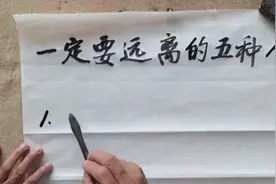 一定要远离的五种
1.